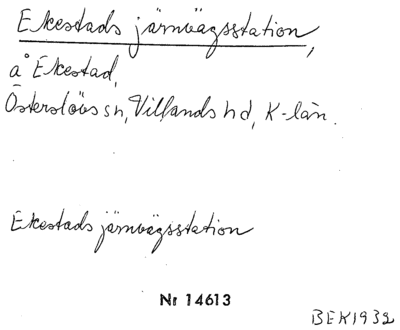 Ekestads järnvägsstation,
å Ekestad,
Österslövs sn, Villands hd, K-län.
Ekestads järnvägsstation
Nr 14613
BEK1932